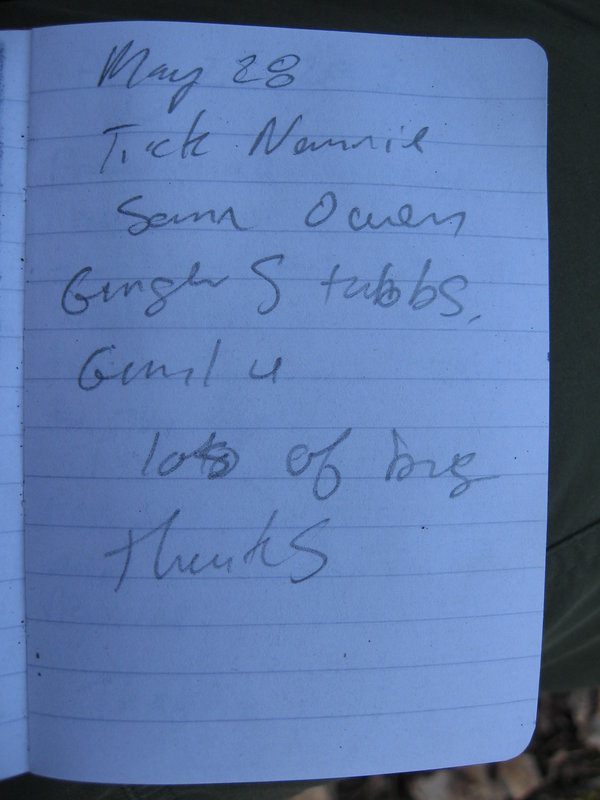 May 28
Tick Nannie
Sam Owen
Ginger Stubbs.
lots of big
thanks